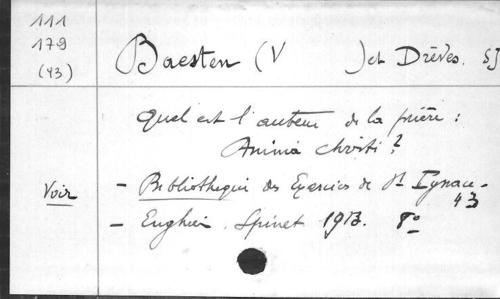 111
179
(43)
Baesten (V      ) et Drèves. SJ
Quel est l'auteur de la prière :
Anima Christi ?
Voir - Bibliothèque des Exercices de St Ignace -
43
- Enghien . Spinet 1913. 8°